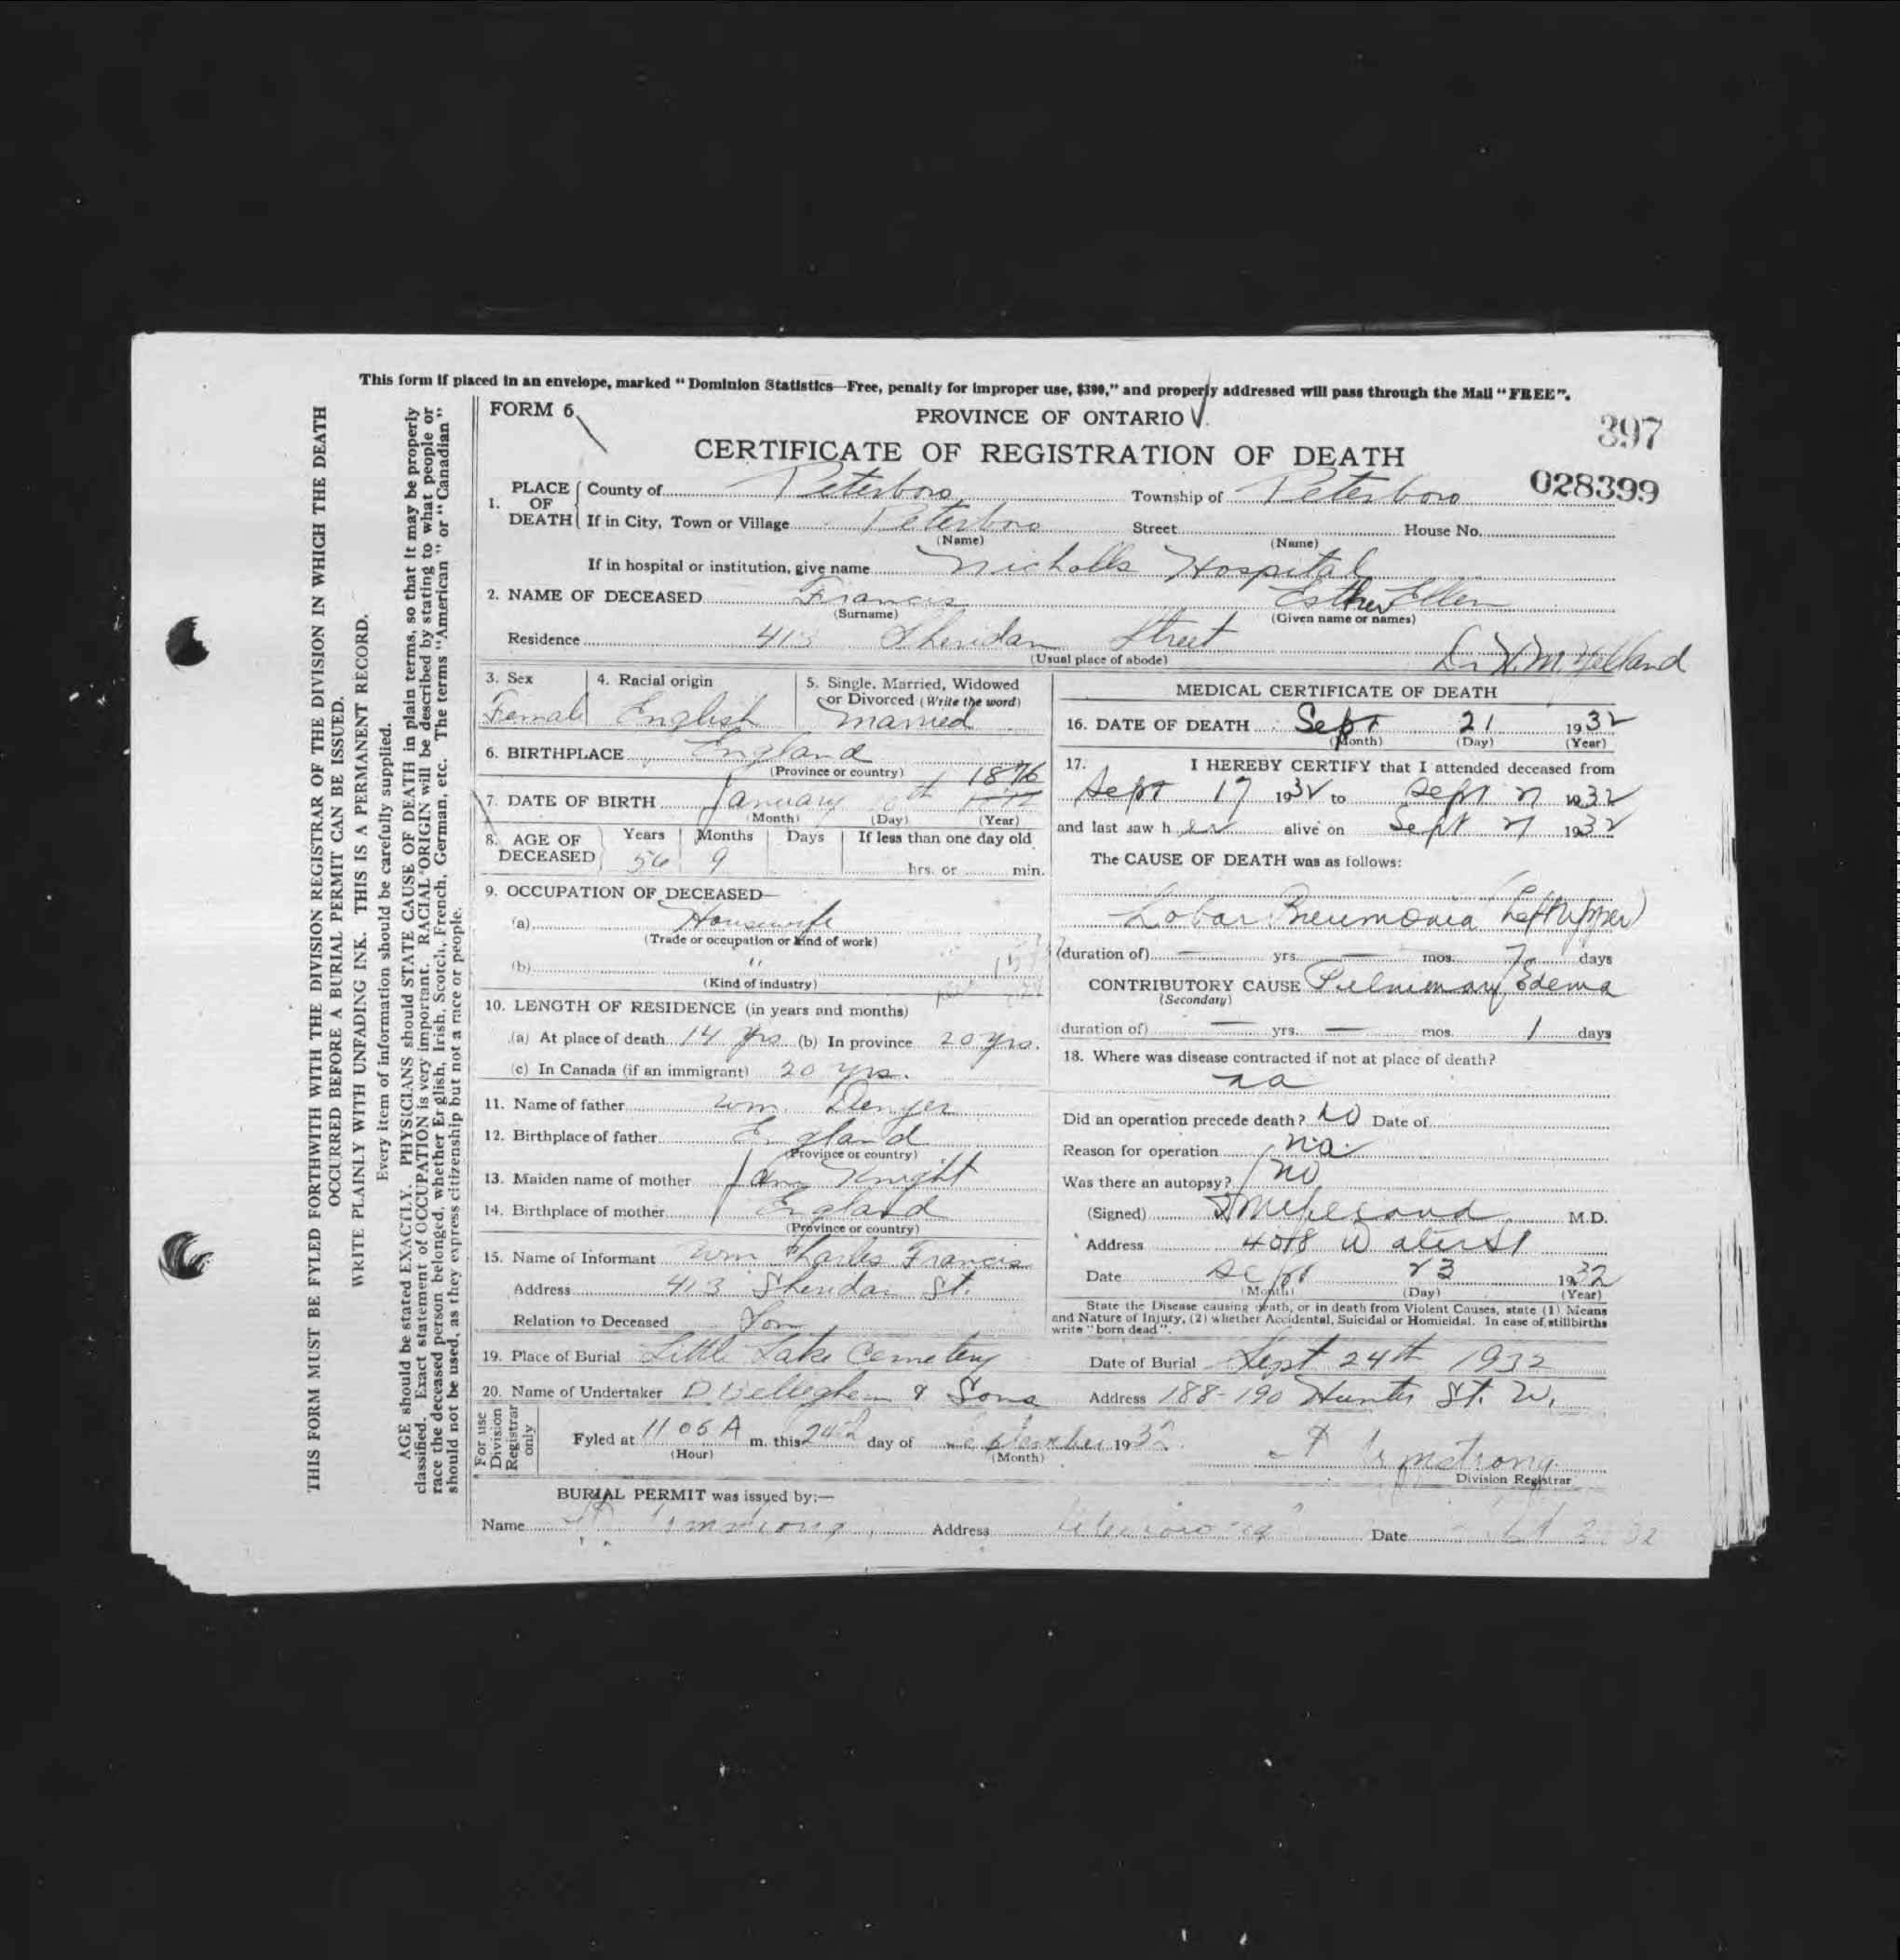 This form if placed in an envelope, marked "Dominion Statistics—Free, penalty for improper use, $300," and properly addressed will pass through the Mail "FREE".
FORM 6
PROVINCE OF ONTARIO
397
CERTIFICATE OF REGISTRATION OF DEATH
028399
1. PLACE OF DEATH
County of Peterboro Township of Peterboro
If in City, Town or Village Peterboro Street House No.
(Name) (Name)
If in hospital or institution, give name Nicholls Hospital
2. NAME OF DECEASED Francis Esther Ellen
(Surname) (Given name or names)
Residence 413 Sheridan Street
(Usual place of abode)
Dr. H. M. Yelland
3. Sex 4. Racial origin 5. Single, Married, Widowed or Divorced (Write the word)
Female English married
6. BIRTHPLACE England
(Province or country)
1876
7. DATE OF BIRTH January th
(Month) (Day) (Year)
8. AGE OF DECEASED Years Months Days If less than one day old
56 9 hrs. or min.
9. OCCUPATION OF DECEASED—
(a) Housewife
(Trade or occupation or kind of work)
(b) "
(Kind of industry)
10. LENGTH OF RESIDENCE (in years and months)
(a) At place of death 14 yrs (b) In province 20 yrs.
(c) In Canada (if an immigrant) 20 yrs.
11. Name of father Wm. Denyer
12. Birthplace of father England
(Province or country)
13. Maiden name of mother Jane Knight
14. Birthplace of mother England
(Province or country)
15. Name of Informant Wm Charles Francis
Address 413 Sheridan St.
Relation to Deceased Son
MEDICAL CERTIFICATE OF DEATH
16. DATE OF DEATH Sept 21 1932
(Month) (Day) (Year)
17. I HEREBY CERTIFY that I attended deceased from
Sept 17 1932 to Sept 21 1932
and last saw her alive on Sept 21 1932
The CAUSE OF DEATH was as follows:
Lobar Pneumonia (Left Upper)
(duration of) — yrs. — mos. 7 days
CONTRIBUTORY CAUSE Pulmonary Edema
(Secondary)
(duration of) — yrs. — mos. 1 days
18. Where was disease contracted if not at place of death?
na
Did an operation precede death? No Date of
Reason for operation na
Was there an autopsy? no
(Signed) M.D.
Address 408 Water St
Date Sept 23 1932
(Month) (Day) (Year)
State the Disease causing death, or in death from Violent Causes, state (1) Means
and Nature of Injury, (2) whether Accidental, Suicidal or Homicidal. In case of stillbirths
write "born dead".
19. Place of Burial Little Lake Cemetery Date of Burial Sept 24th 1932
20. Name of Undertaker D Belleghem & Sons Address 188-190 Hunter St. W.
For use Division Registrar only
Fyled at 11 05 A m. this 24th day of September 1932 Armstrong
(Hour) (Month) Division Registrar
BURIAL PERMIT was issued by:—
Name Armstrong Address Date 32
THIS FORM MUST BE FYLED FORTHWITH WITH THE DIVISION REGISTRAR OF THE DIVISION IN WHICH THE DEATH
OCCURRED BEFORE A BURIAL PERMIT CAN BE ISSUED.
WRITE PLAINLY WITH UNFADING INK. THIS IS A PERMANENT RECORD.
Every item of information should be carefully supplied.
AGE should be stated EXACTLY. PHYSICIANS should STATE CAUSE OF DEATH in plain terms, so that it may be properly
classified. Exact statement of OCCUPATION is very important. RACIAL ORIGIN will be described by stating to what people or
race the deceased person belonged, whether English, Irish, Scotch, French, German, etc. The terms "American" or "Canadian"
should not be used, as they express citizenship but not a race or people.